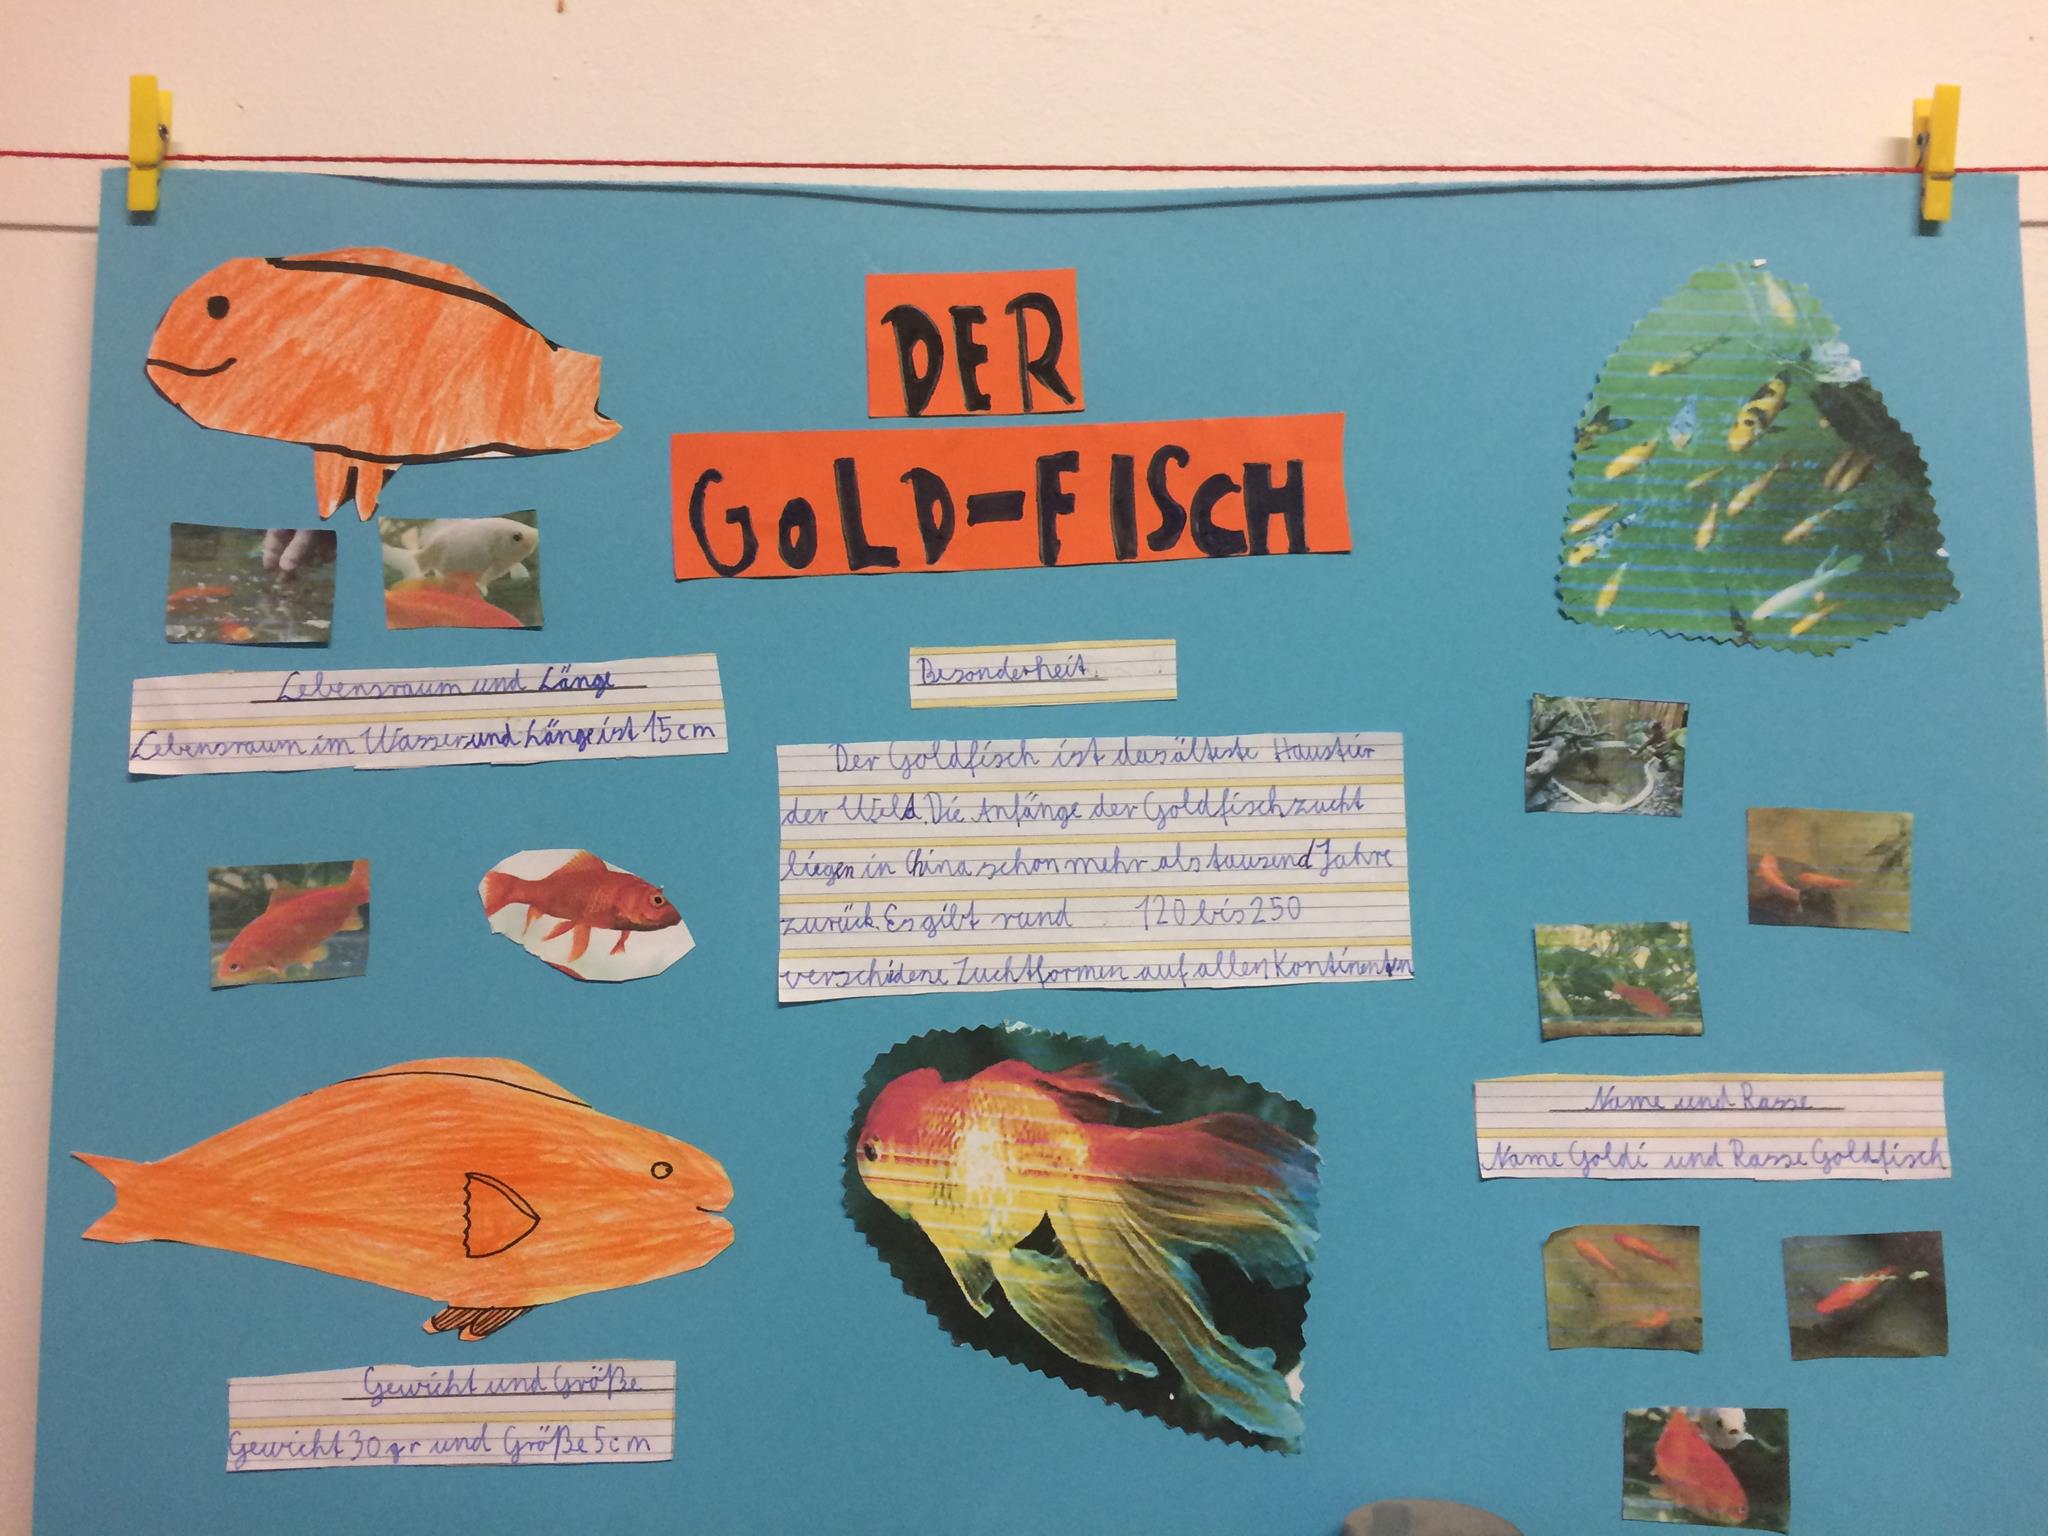 DER
GOLD-FISCH
Lebensraum und Länge
Lebensraum im Wasser und Länge ist 15cm
Besonderheit.
Der Goldfisch ist das älteste Haustir
der Weld. Die Anfänge der Goldfischzucht
liegen in China schon mehr als tausend Jahre
zurück. Es gibt rund 120 bis 250
verschidene Zuchtformen auf allen Kontinenten
Name und Rasse
Name Goldi und Rasse Goldfisch
Gewicht und Größe
Gewicht 30gr und Größe 5cm